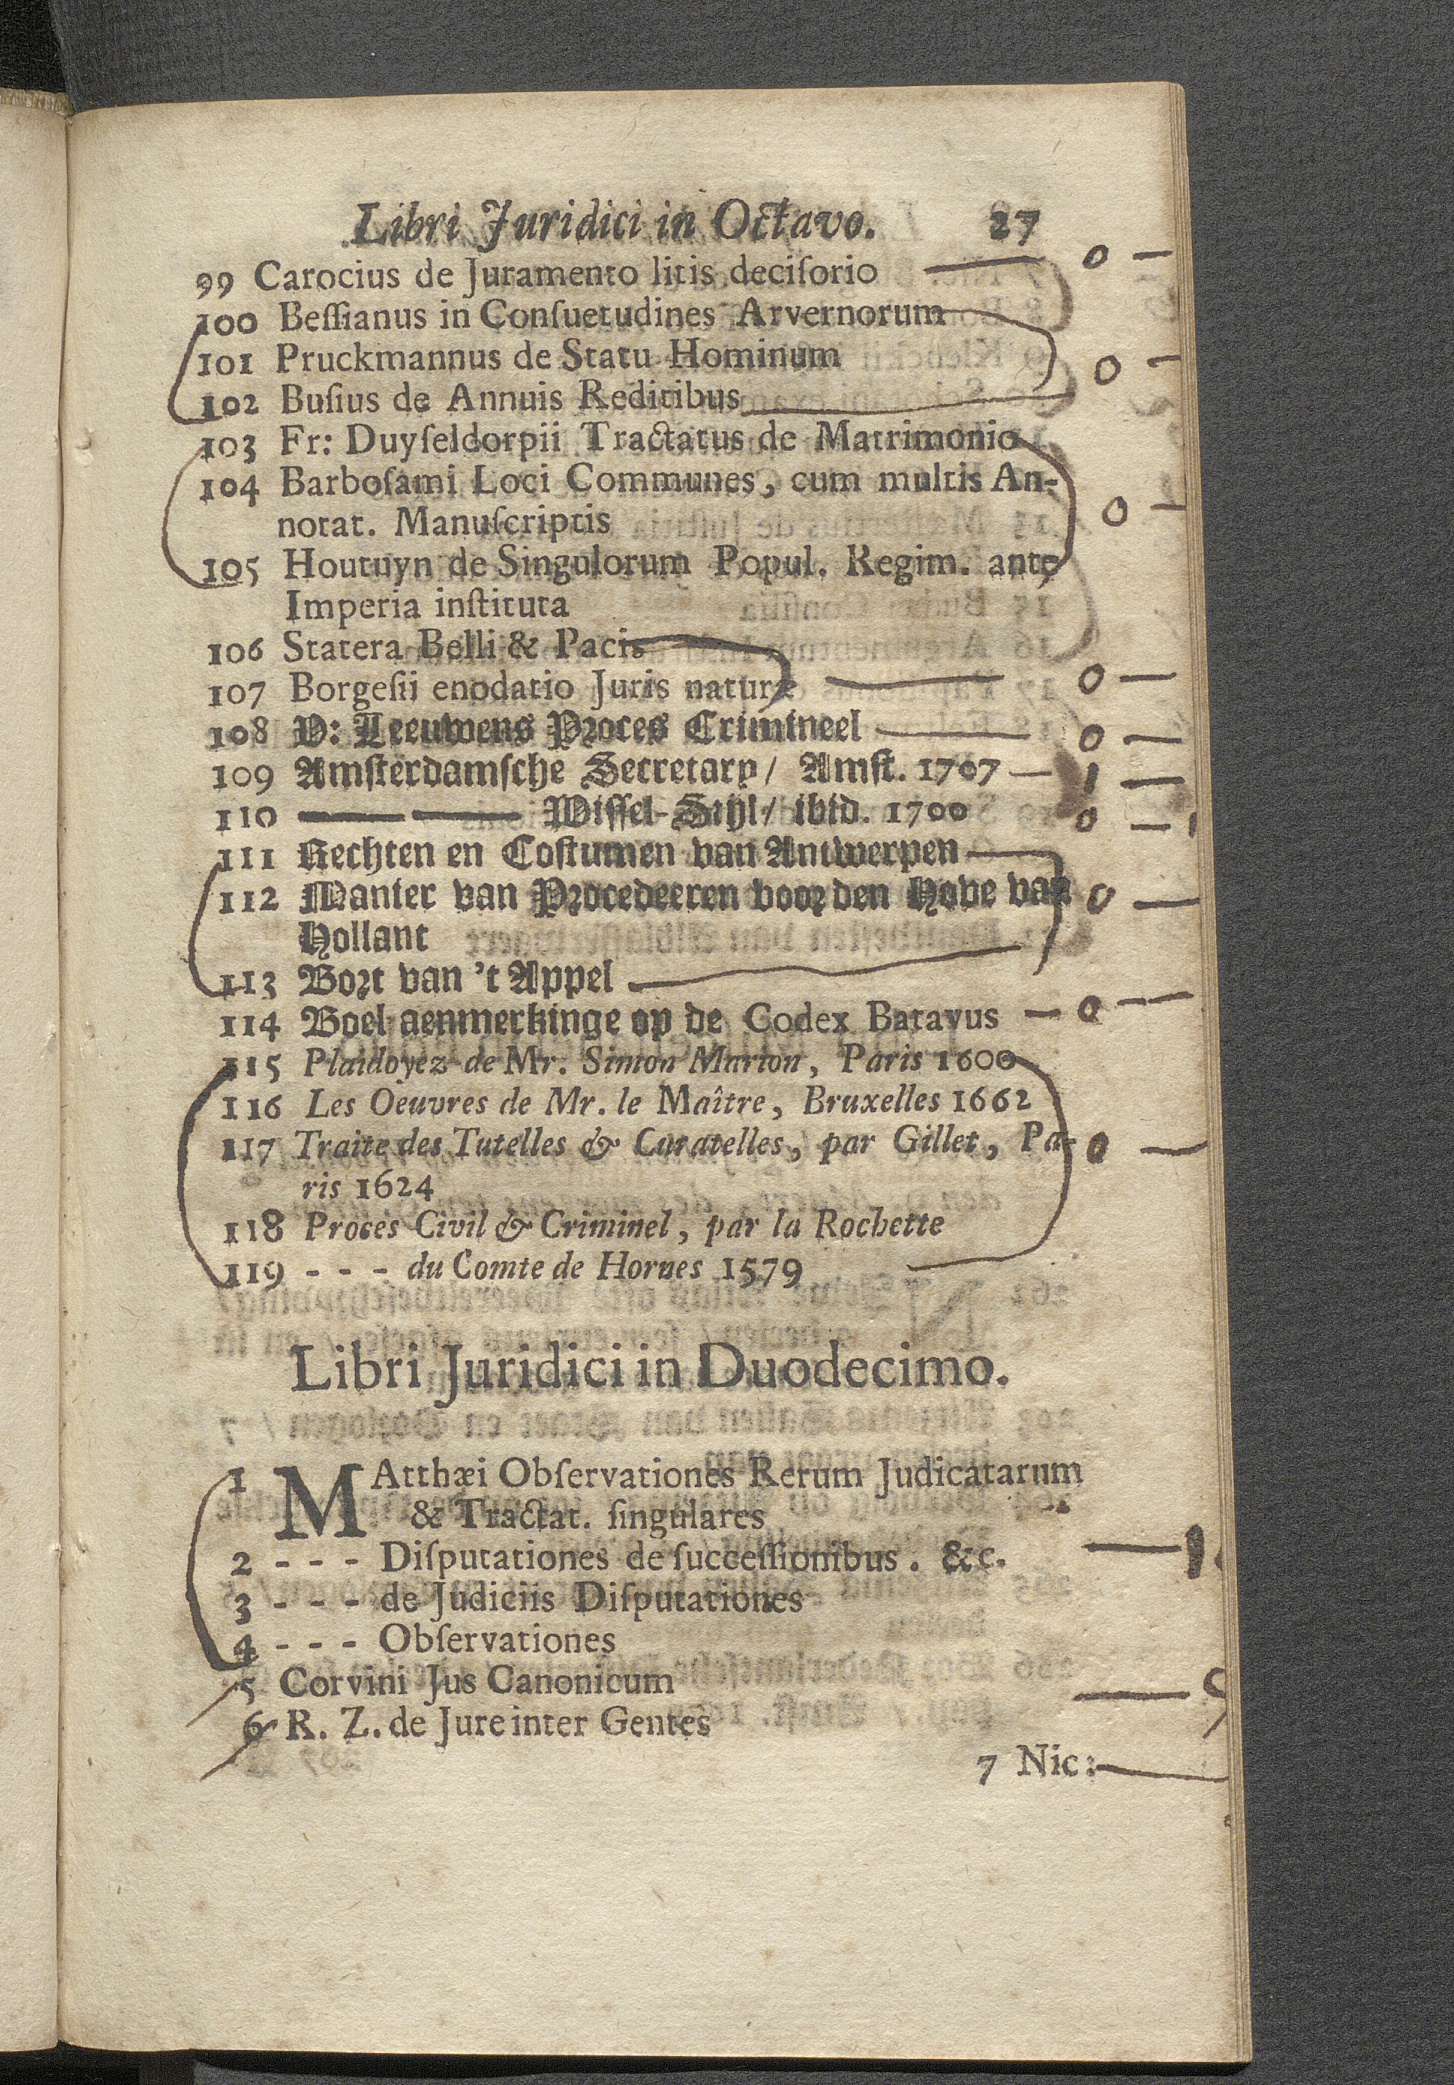 Libri Juridici in Octavo. 27
99 Carocius de Juramento litis deciſorio 0 —
100 Beſſianus in Conſuetudines Arvernorum
101 Pruckmannus de Statu Hominum 0 -
102 Buſius de Annuis Reditibus
103 Fr: Duyſeldorpii Tractatus de Matrimonio
104 Barboſami Loci Communes, cum multis An-
notat. Manuſcriptis 0 —
105 Houtuyn de Singulorum Popul. Regim. ante
Imperia inſtituta
106 Statera Belli & Pacis
107 Borgeſii enodatio Juris naturæ 0 —
108 V: Leeuwens Proces Crimineel 0 —
109 Amſterdamſche Secretary / Amſt. 1707 — 1 —
110 —— —— Wiſſel-Stijl / ibid. 1700 0 —
111 Rechten en Coſtumen van Antwerpen
112 Manier van Procedeeren voor den Hove van 0 —
Hollant
113 Bort van 't Appel
114 Boel aenmerkinge op de Codex Batavus — 0 —
115 Plaidoyez de Mr. Simon Marion, Paris 1600
116 Les Oeuvres de Mr. le Maître, Bruxelles 1662
117 Traite des Tutelles & Curatelles, par Gillet, Pa- 0 —
ris 1624
118 Proces Civil & Criminel, par la Rochette
119 - - - du Comte de Hornes 1579
Libri Juridici in Duodecimo.
1 MAtthæi Obſervationes Rerum Judicatarum
& Tractat. ſingulares
2 - - - Diſputationes de ſucceſſionibus. &c. — 1
3 - - - de Judiciis Diſputationes
4 - - - Obſervationes
5 Corvini Jus Canonicum
6 R. Z. de Jure inter Gentes
7 Nic: